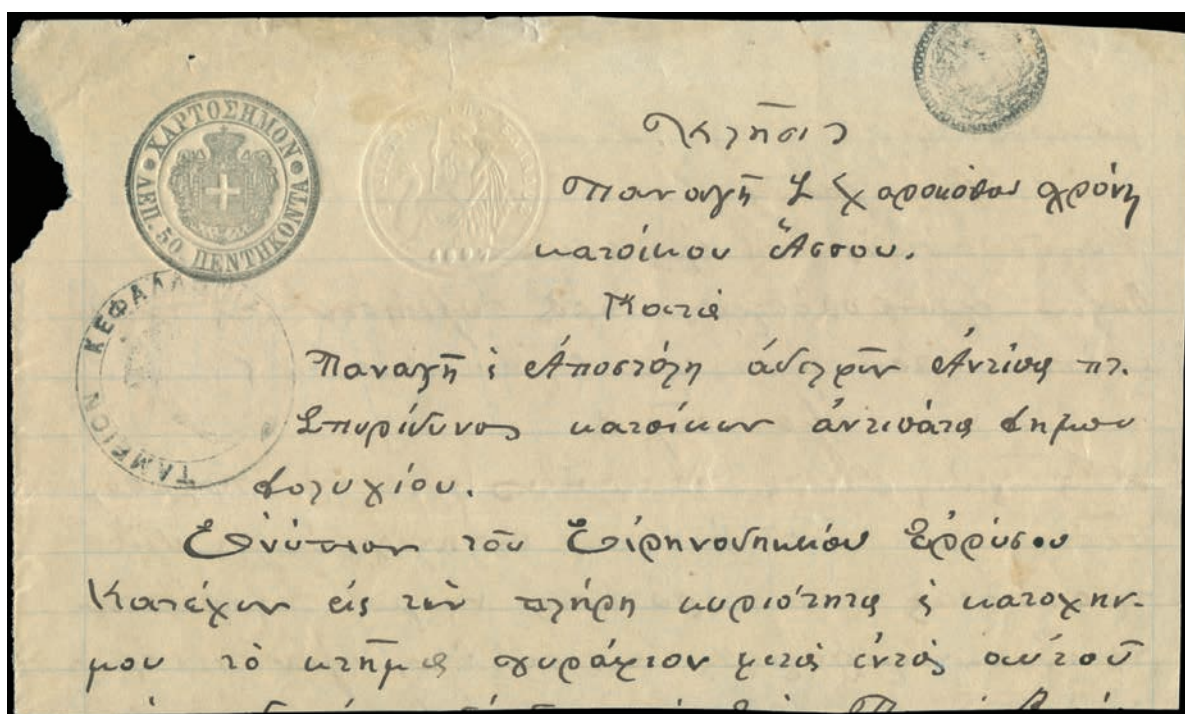 ΧΑΡΤΟΣΗΜΟΝ
ΛΕΠ. 50 ΠΕΝΤΗΚΟΝΤΑ
ΤΑΜΕΙΟΝ ΚΕΦΑΛΛ
Κλῆσις
Παναγῆ
κατοίκου Ἄσσου.
Κατὰ
Παναγῆ & Ἀποστόλη ἀδελφῶν Ἀντίπα πτ.
Σπυρίδωνος κατοίκων ἀντιπάτα δήμου
δολιχίου.
Ἐνώπιον τοῦ Εἰρηνοδικείου Ἐρρύσου
Κατέχων εἰς τὴν πλήρη κυριότητα & κατοχήν
μου τὸ κτῆμα μετὰ ἐντὸς αὐτοῦ